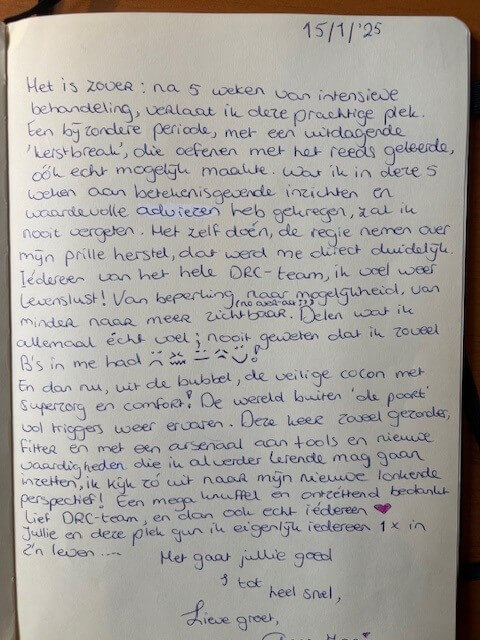 15/1/'25
Het is zover: na 5 weken van intensieve
behandeling, verlaat ik deze prachtige plek.
Een bijzondere periode, met een uitdagende
'kerstbreak', die oefenen met het reeds geleerde,
óók echt mogelijk maakte. Wat ik in deze 5
weken aan betekenisgevende inzichten en
waardevolle adviezen heb gekregen, zal ik
nooit vergeten. Het zelf doén, de regie nemen over
mijn prille herstel, dat werd me direct duidelijk.
Iédereen van het hele DRC-team, ik voel weer
levenslust! Van beperking naar mogelijkheid, van
minder naar meer zichtbaar. Delen wat ik
allemaal écht voel; nooit geweten dat ik zoveel
B's in me had
En dan nu, uit de bubbel, de veilige cocon met
superzorg en comfort! De wereld buiten 'de poort'
vol triggers weer ervaren. Deze keer zoveel gezonder,
fitter en met een arsenaal aan tools en nieuwe
vaardigheden die ik al verder lerende mag gaan
inzetten, ik kijk zó uit naar mijn nieuwe lonkende
perspectief! Een mega knuffel en ontzettend bedankt
lief DRC-team, en dan ook echt iédereen ♥
Jullie en deze plek gun ik eigenlijk iedereen 1x in
z'n leven ....
Het gaat jullie goed
& tot
heel snel,
Lieve groet,